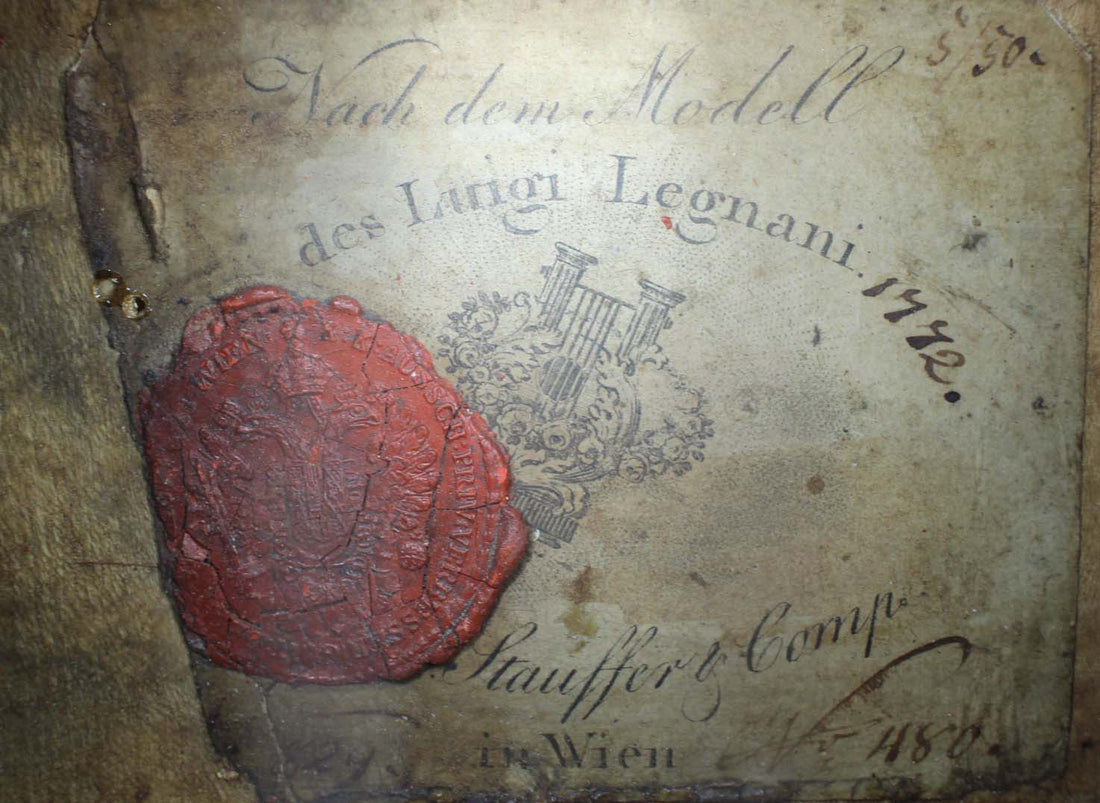 5/50.
Nach dem Modell
des Luigi Legnani.
1772.
Stauffer & Comp.
in Wien
No 480.